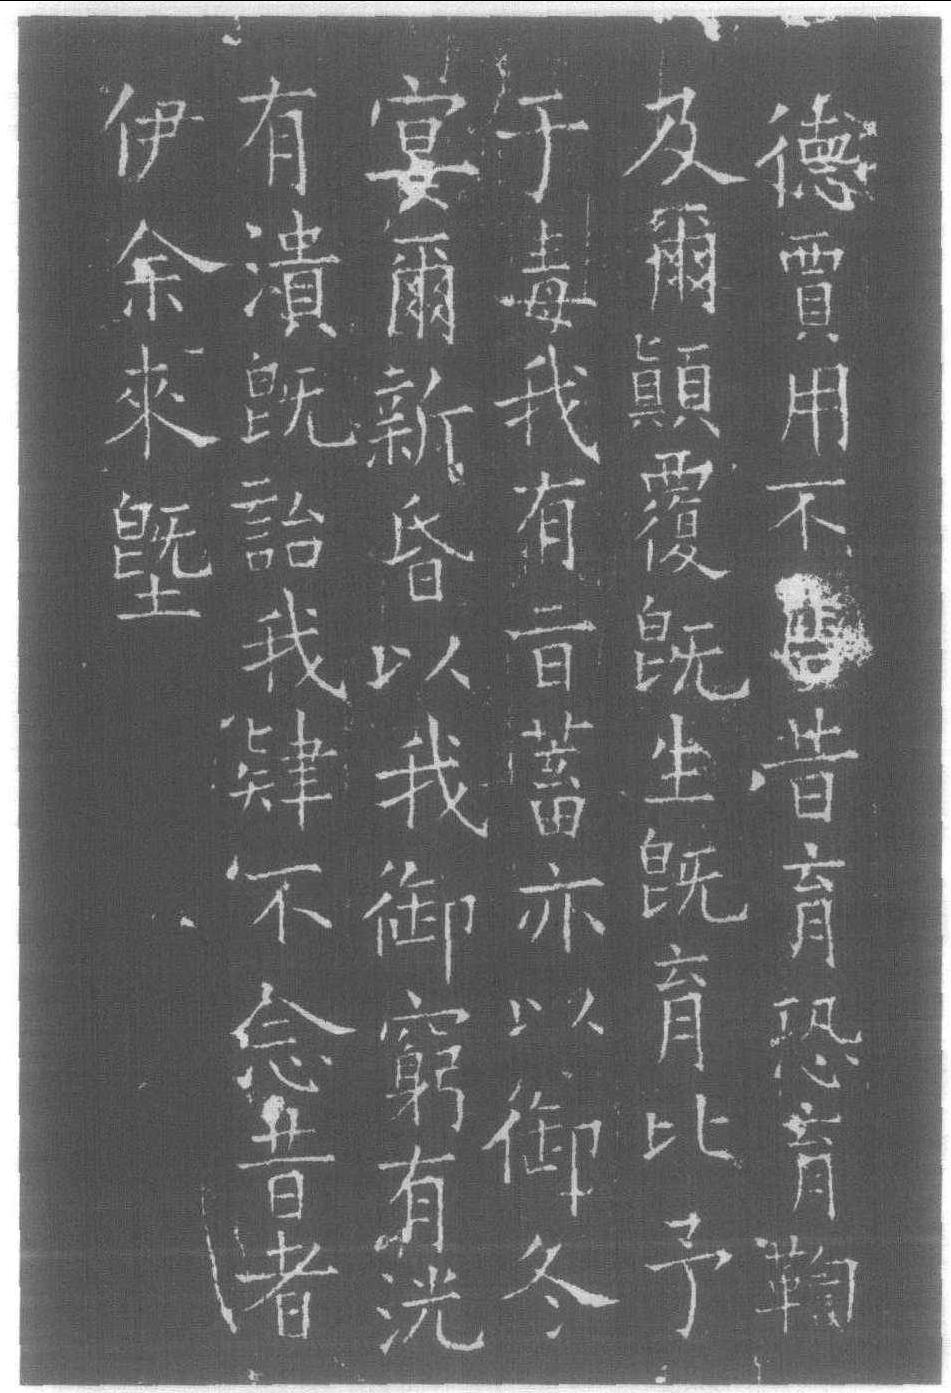 德賈用不售昔育恐育鞠
及爾顛覆既生既育比予
于毒我有旨蓄亦以御冬
宴爾新昏以我御窮有洸
有潰既詒我肄不念昔者
伊余來塈